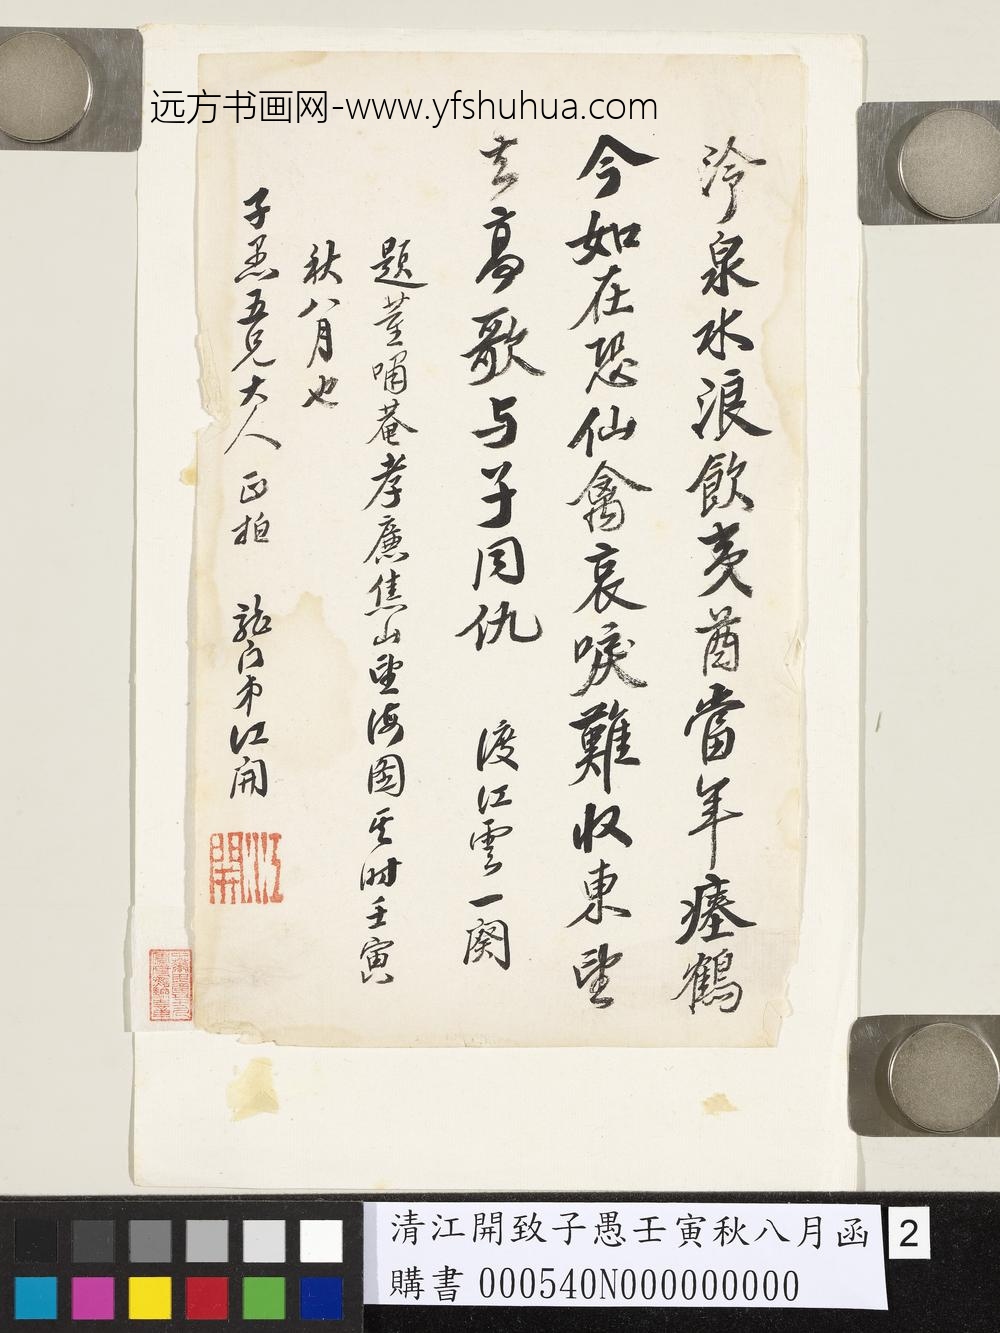 远方书画网-www.yfshuhua.com
泠泉水浪飲夷酋當年瘞鶴
今如在恐仙禽哀唳難收東望
去高歌与子同仇　渡江雲一闋
題董嘯菴孝廉焦山望海圖其时壬寅
秋八月也
子愚五兄大人　正拍　龍门弟江開
江開
清江開致子愚壬寅秋八月函
購書 000540N000000000
2